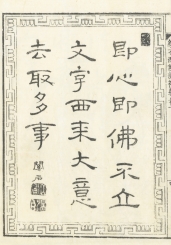 即心即佛不立
文字西来大意
去取多事